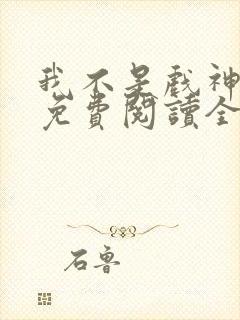 我不是戲神
免費閱讀全
石魯